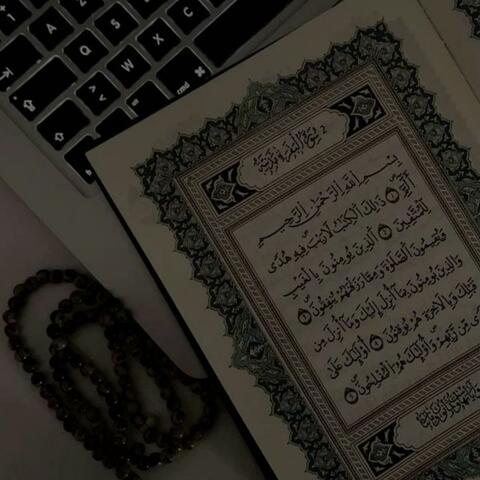 A S
Q X
W
سُورَةُ الْبَقَرَةِ مَدَنِيَّةٌ
بِسْمِ اللَّهِ الرَّحْمَٰنِ الرَّحِيمِ
الٓمٓ ذَٰلِكَ الْكِتَابُ لَا رَيْبَ فِيهِ هُدًى
لِلْمُتَّقِينَ الَّذِينَ يُؤْمِنُونَ بِالْغَيْبِ
وَيُقِيمُونَ الصَّلَوٰةَ وَمِمَّا رَزَقْنَاهُمْ يُنْفِقُونَ
وَالَّذِينَ يُؤْمِنُونَ بِمَا أُنْزِلَ إِلَيْكَ وَمَا أُنْزِلَ مِنْ
قَبْلِكَ وَبِالْآخِرَةِ هُمْ يُوقِنُونَ أُولَٰئِكَ عَلَىٰ
هُدًى مِنْ رَبِّهِمْ وَأُولَٰئِكَ هُمُ الْمُفْلِحُونَ